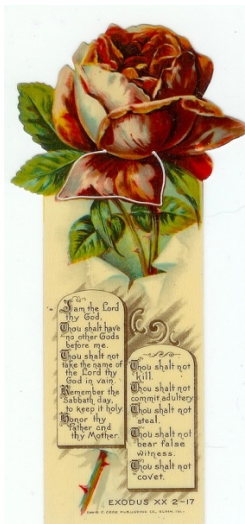 I am the Lord
thy God,
Thou shalt have
no other Gods
before me.
Thou shalt not
take the name of
the Lord thy
God in vain.
Remember the
Sabbath day,
to keep it holy.
Honor thy
Father and
thy Mother.
Thou shalt not
kill.
Thou shalt not
commit adultery
Thou shalt not
steal.
Thou shalt not
bear false
witness.
Thou shalt not
covet.
EXODUS XX 2-17
DAVID C. COOK PUBLISHING CO., ELGIN, ILL.